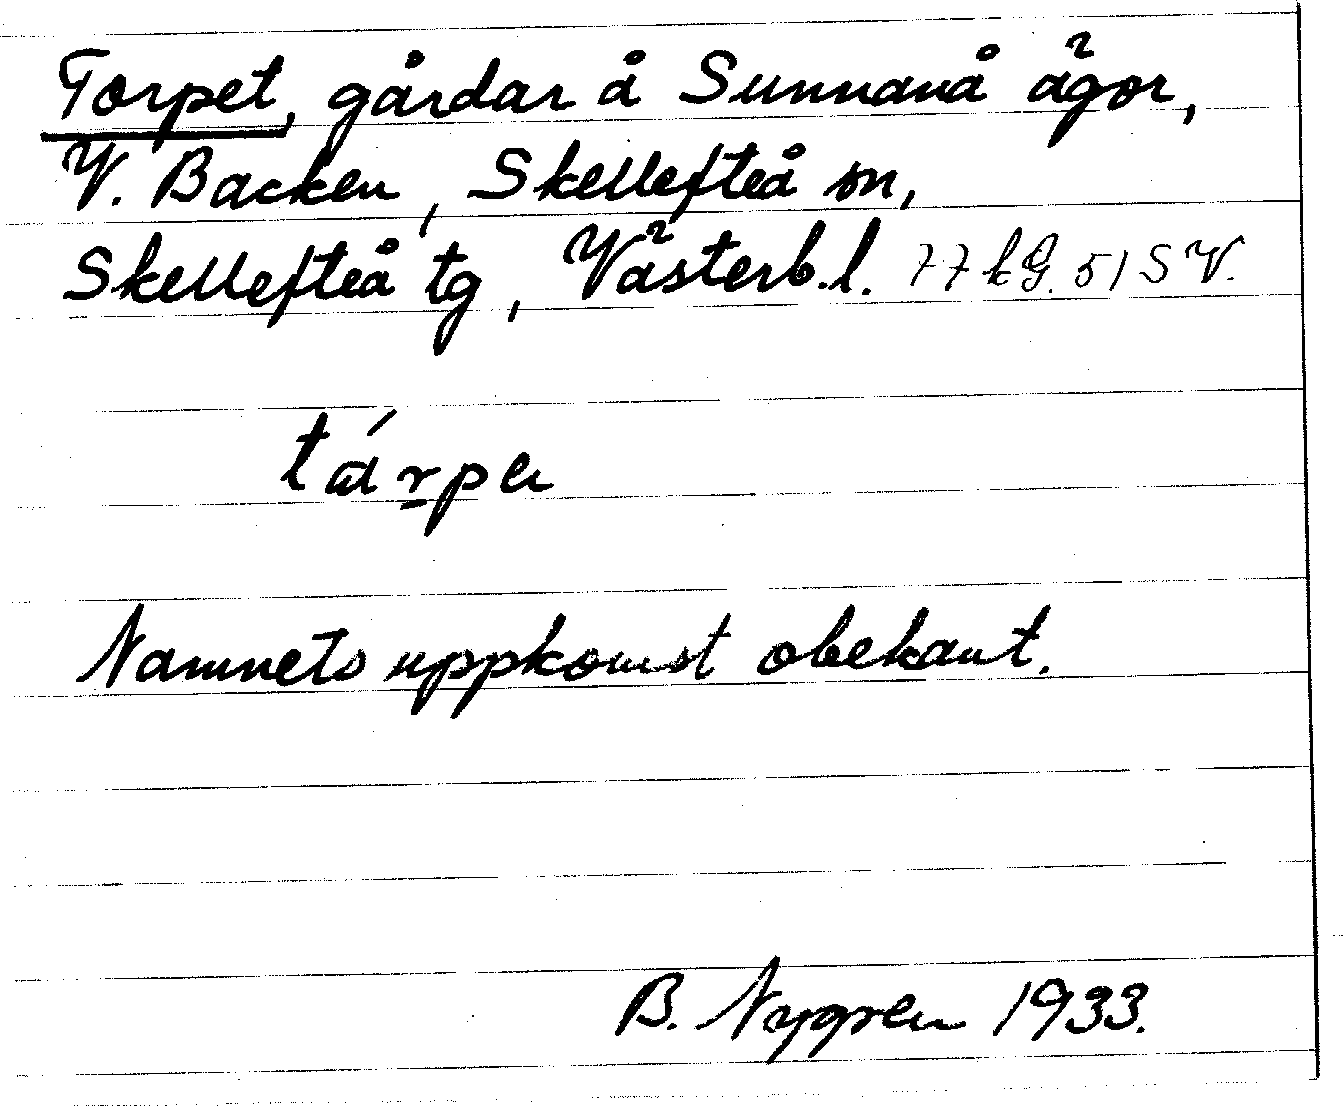 Torpet, gårdar å Sunnanå ägor,
V. Backen, Skellefteå sn,
Skellefteå tg, Västerb.l. 77 kG. 51 SV.
tárpe
Namnets uppkomst obekant.
B. Nygren 1933.